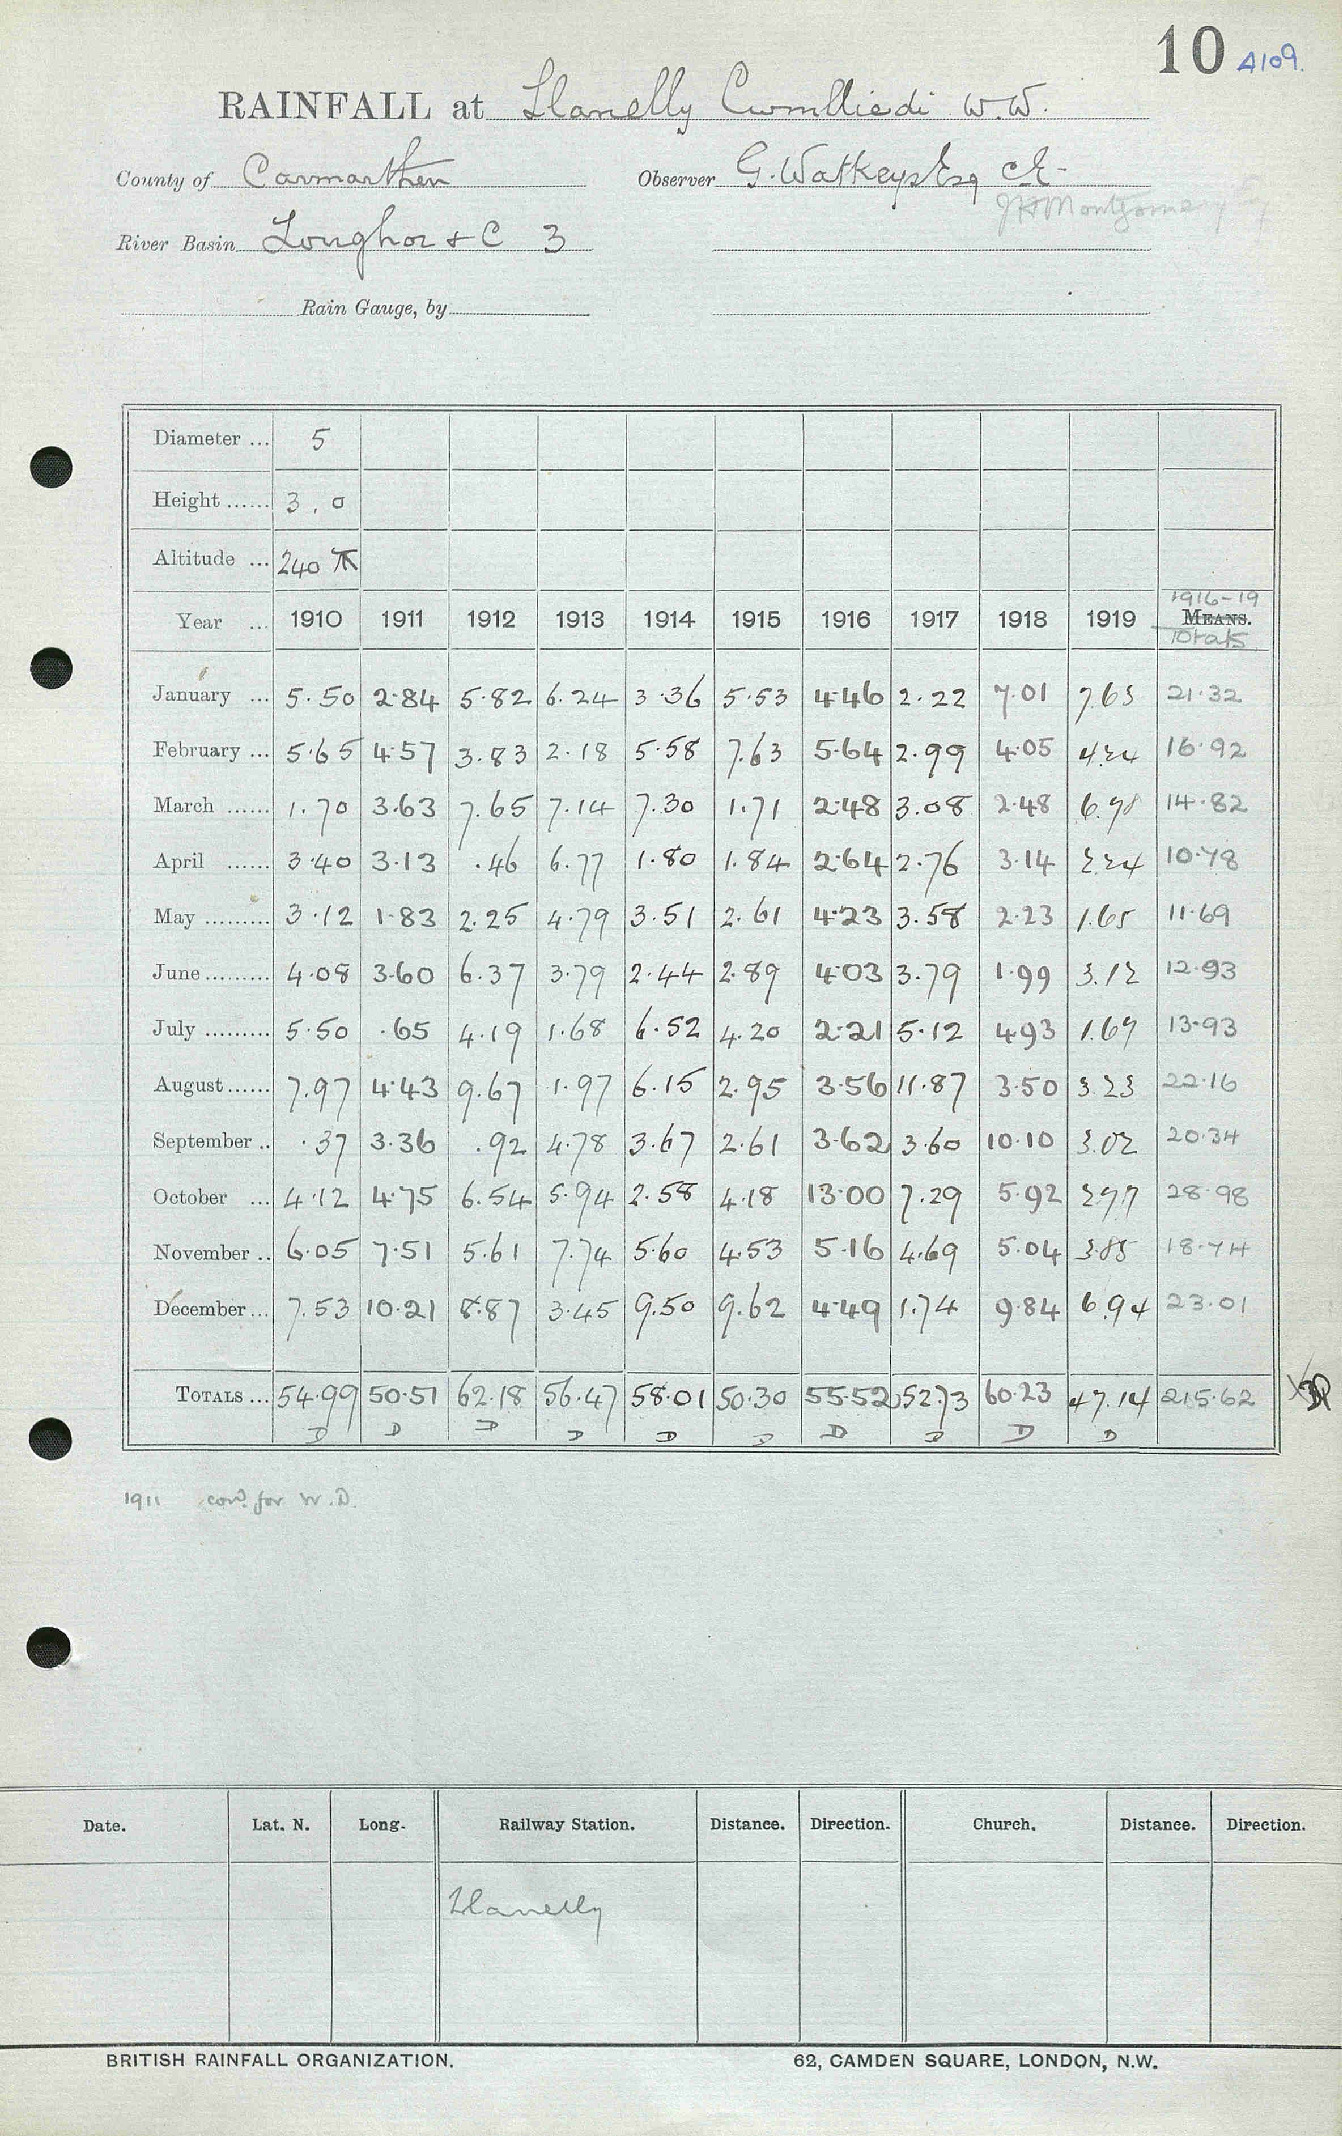 10 4109.
RAINFALL at Llanelly Cwmlliedi W.W.
County of Carmarthen Observer G. Watkeys Esq CE
JH Montgomery
River Basin Loughor & C 3
Rain Gauge, by
Diameter ... 5
Height ...... 3.0
Altitude ... 240
1916-19
Year ... 1910 1911 1912 1913 1914 1915 1916 1917 1918 1919 MEANS.
Totals
January ... 5.50 2.84 5.82 6.24 3.36 5.53 4.46 2.22 7.01 7.63 21.32
February ... 5.65 4.57 3.83 2.18 5.58 7.63 5.64 2.99 4.05 4.24 16.92
March ...... 1.70 3.63 7.65 7.14 7.30 1.71 2.48 3.08 2.48 6.78 14.82
April ...... 3.40 3.13 .46 6.77 1.80 1.84 2.64 2.76 3.14 2.24 10.78
May ......... 3.12 1.83 2.25 4.79 3.51 2.61 4.23 3.58 2.23 1.65 11.69
June ......... 4.08 3.60 6.37 3.79 2.44 2.89 4.03 3.79 1.99 3.12 12.93
July ......... 5.50 .65 4.19 1.68 6.52 4.20 2.21 5.12 4.93 1.67 13.93
August ...... 7.97 4.43 9.67 1.97 6.15 2.95 3.56 11.87 3.50 3.23 22.16
September .. .37 3.36 .92 4.78 3.67 2.61 3.62 3.60 10.10 3.02 20.34
October ... 4.12 4.75 6.54 5.94 2.58 4.18 13.00 7.29 5.92 2.77 28.98
November .. 6.05 7.51 5.61 7.74 5.60 4.53 5.16 4.69 5.04 3.85 18.74
December ... 7.53 10.21 8.87 3.45 9.50 9.62 4.49 1.74 9.84 6.94 23.01
TOTALS ... 54.99 50.51 62.18 56.47 58.01 50.30 55.52 52.73 60.23 47.14 215.62
D D D D D D D D D D
1911 corr. for W.D.
Date. Lat. N. Long. Railway Station. Distance. Direction. Church. Distance. Direction.
Llanelly
BRITISH RAINFALL ORGANIZATION. 62, CAMDEN SQUARE, LONDON, N.W.